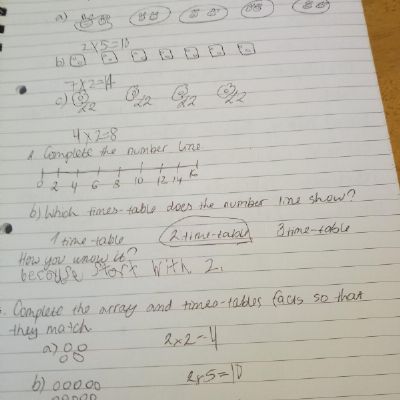 a)
2x5=10
b)
7x2=14
c) 22 22 22 22
4x2=8
Complete the number line
0 2 4 6 8 10 12 14 16
b) Which times-table does the number line show?
1 time-table 2 time-table 3 time-table
How you know it?
because start with 2.
Complete the array and times-tables facts so that
they match
a) 2x2=4
b) 2x5=10